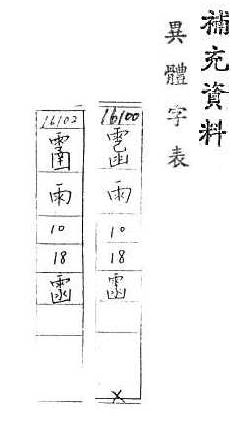 補充資料
異體字表
16100
雨
10
18
X
16102
雨
10
18